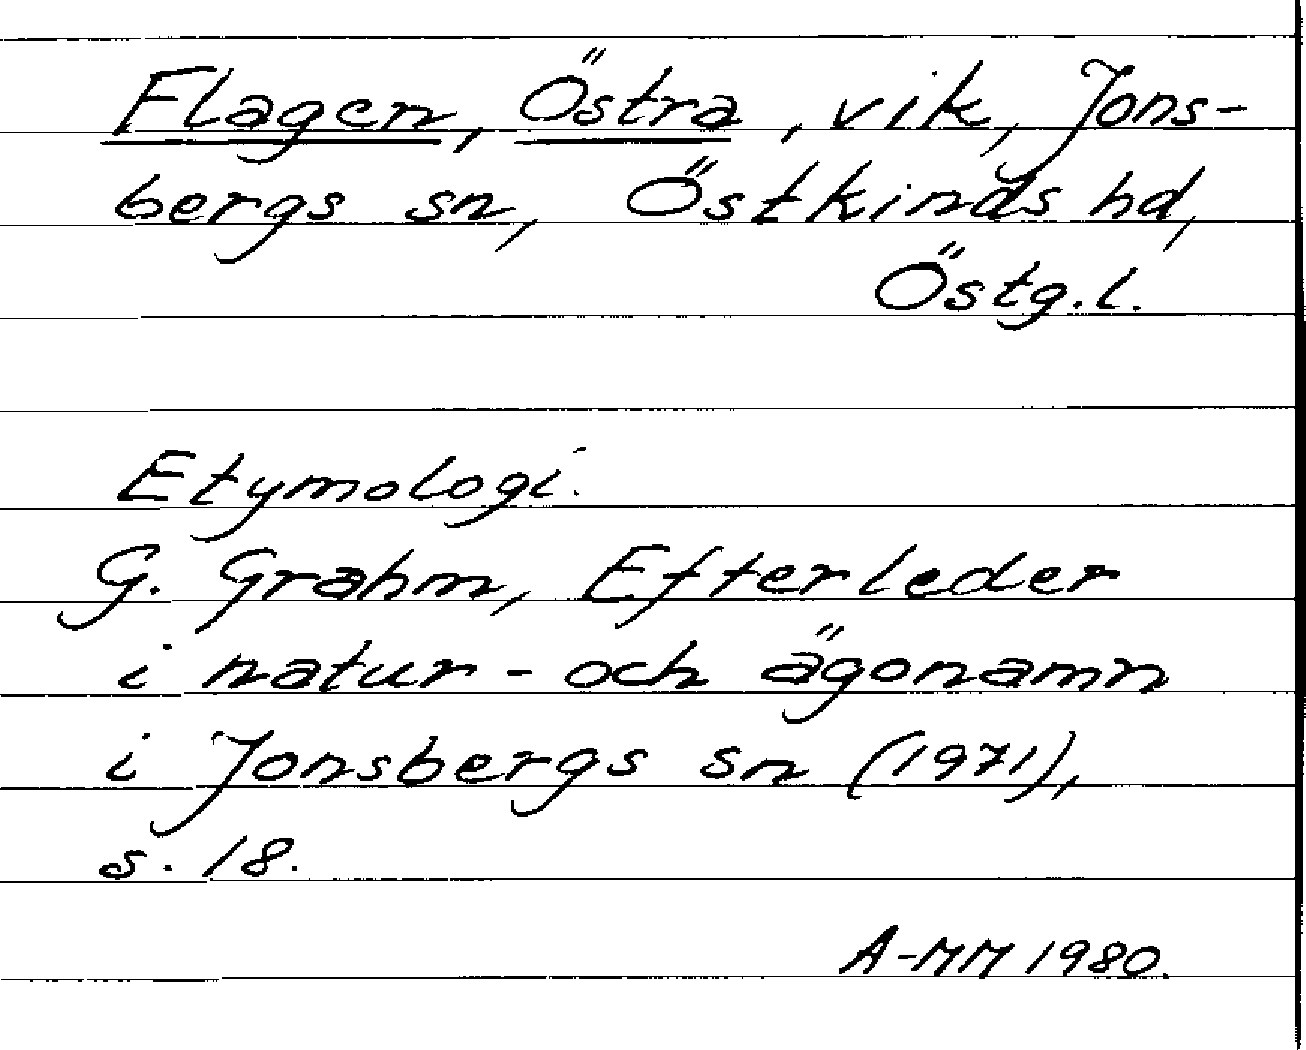 Flagen, Östra, vik, Jons-
bergs sn, Östkinds hd,
Östg.l.
Etymologi.
G. Grahm, Efterleder
i natur- och ägonamn
i Jonsbergs sn (1971),
s. 18.
A-MM 1980.